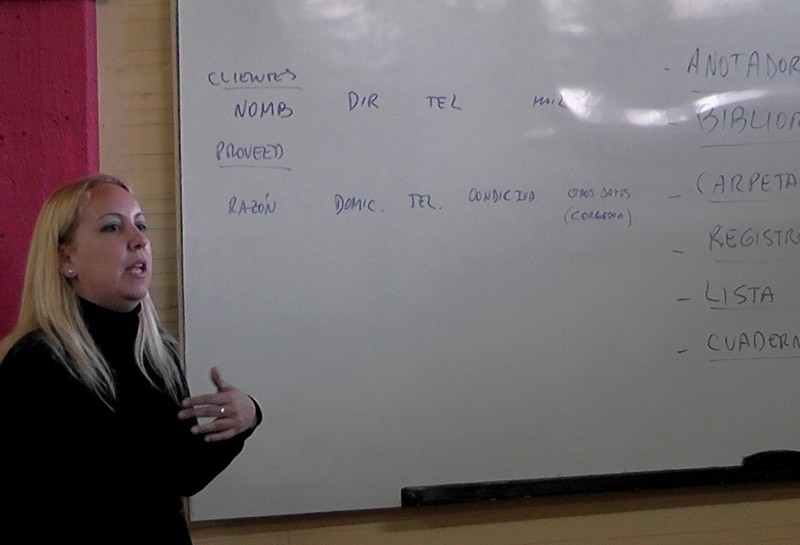 CLIENTES
NOMB DIR TEL MAIL
PROVEED
RAZÓN DOMIC. TEL. COND IVA OTROS DATOS
(CORREDOR)
- ANOTADOR
- BIBLIOR
- CARPETA
- REGISTR
- LISTA
- CUADERN